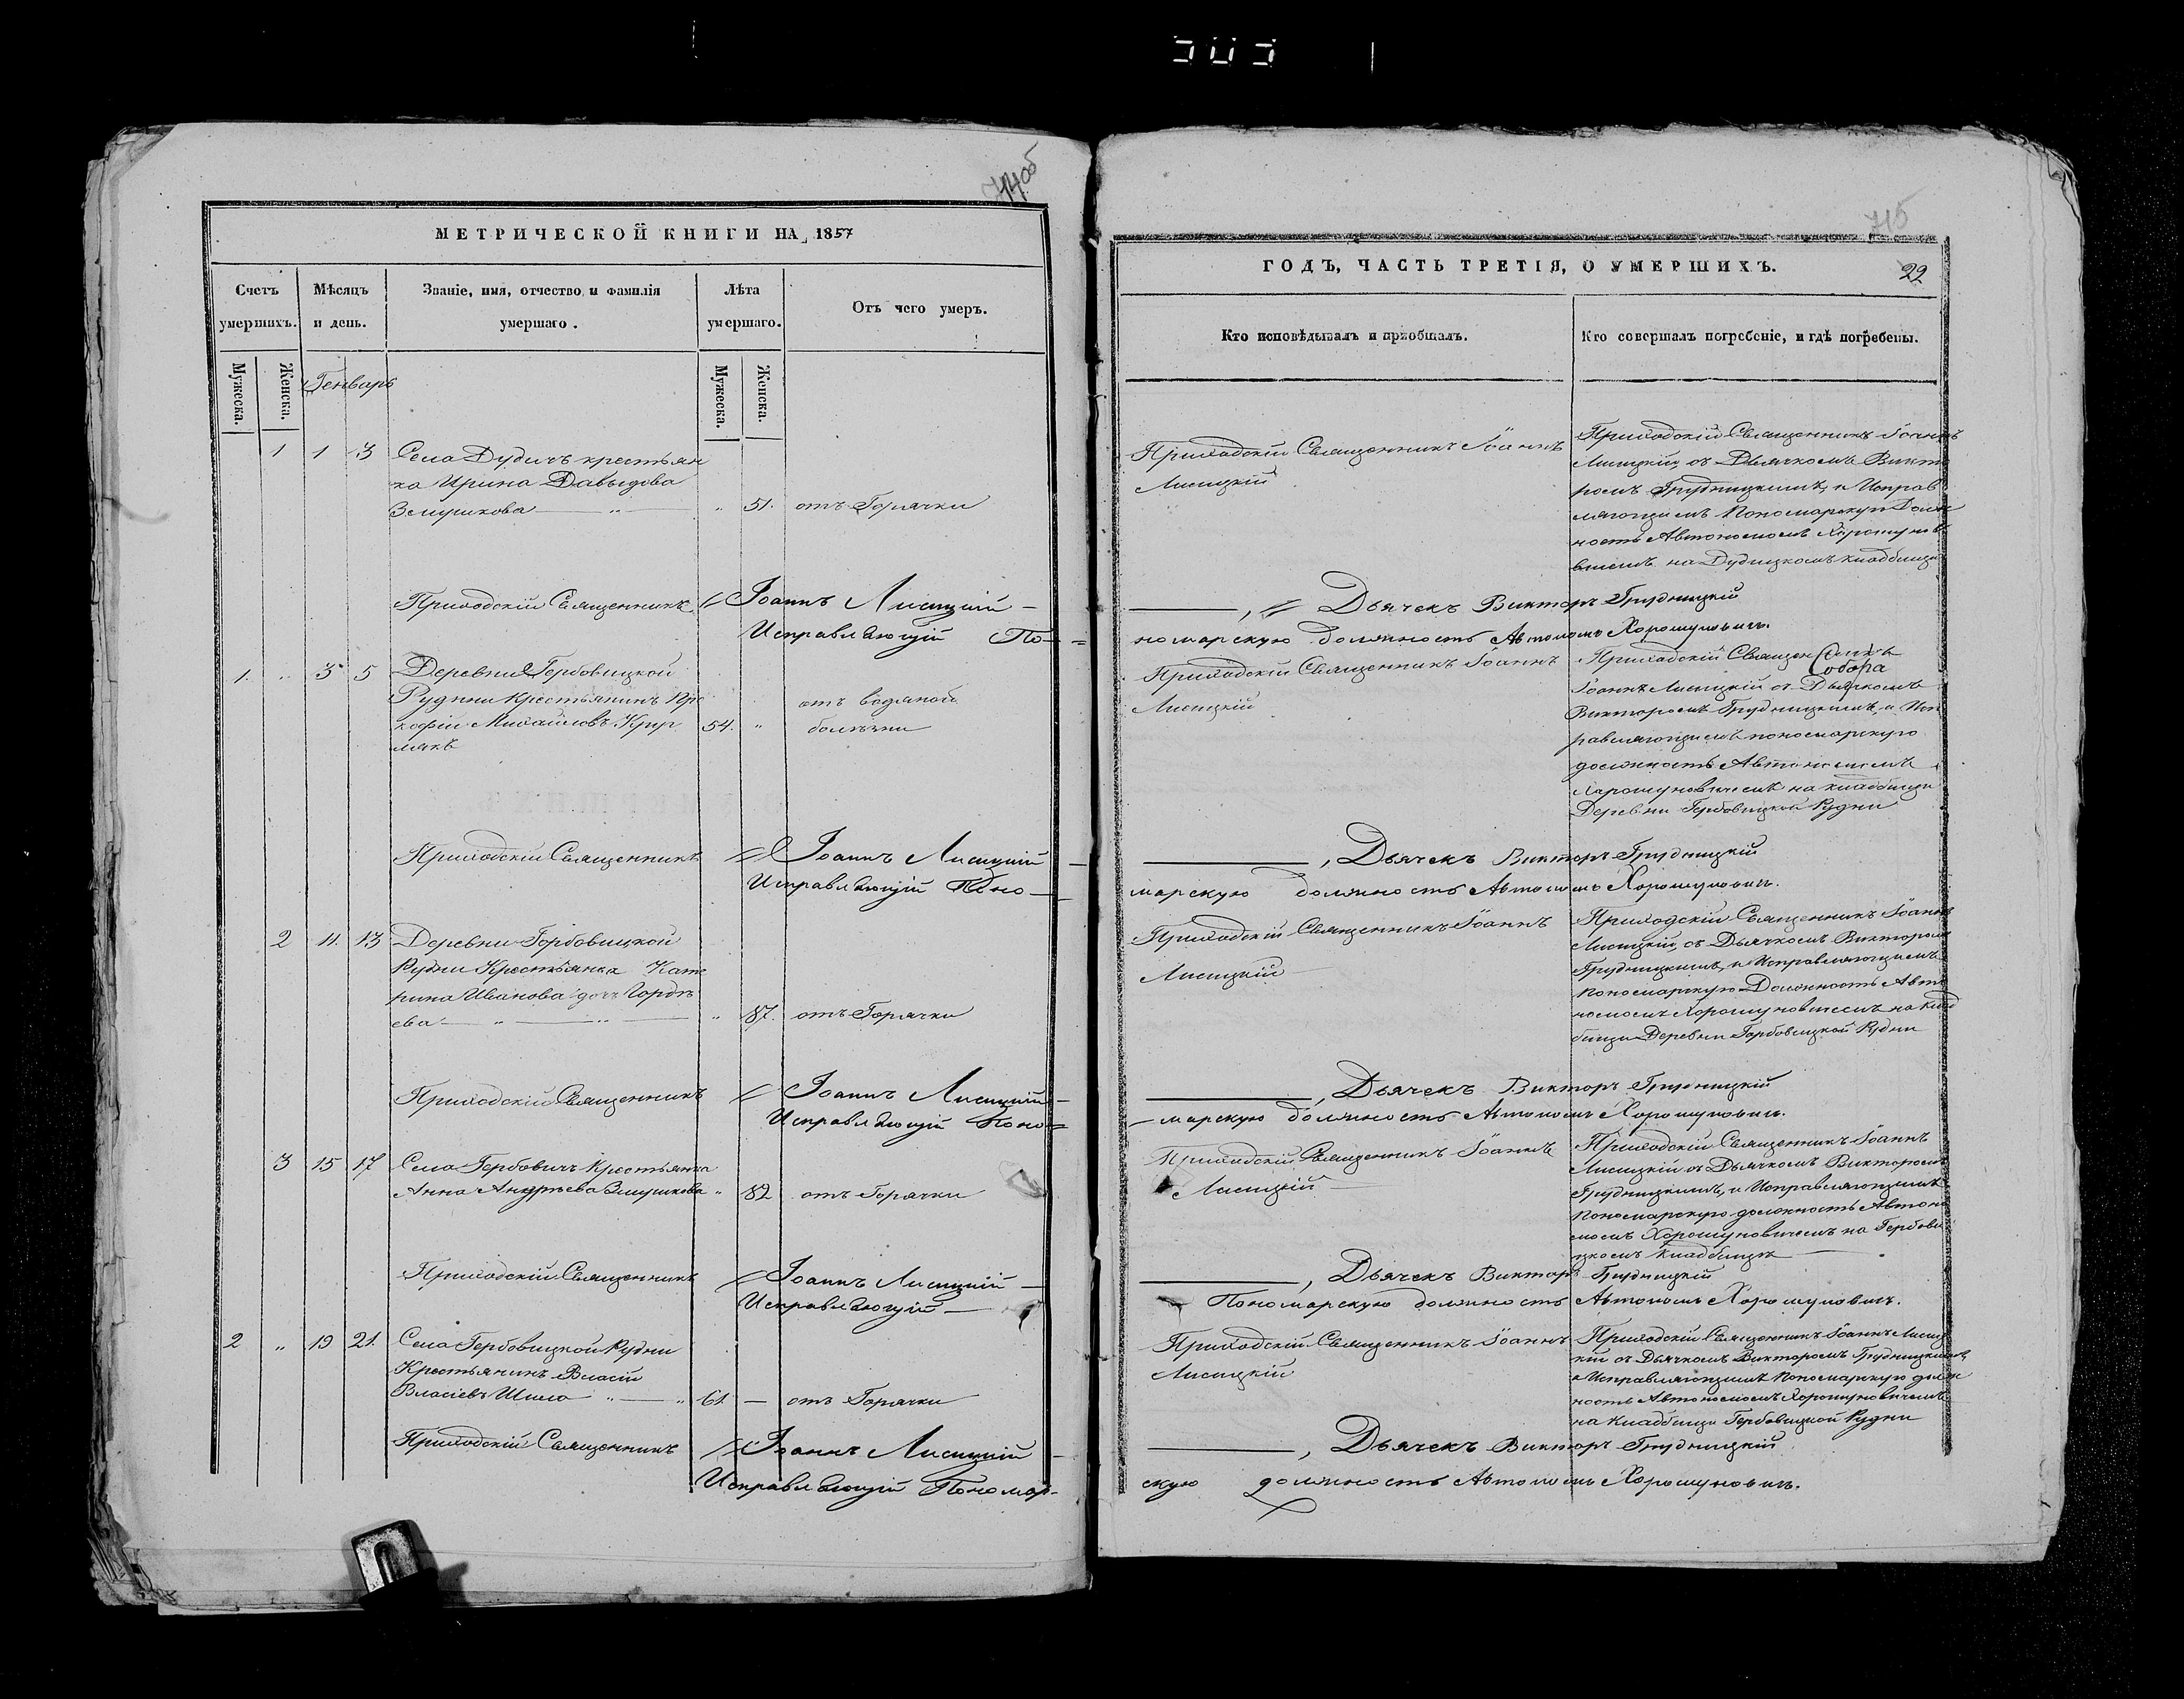 714об
МЕТРИЧЕСКОЙ КНИГИ НА 1857
Счетъ умершихъ.
Мѣсяцъ и день.
Званіе, имя, отчество и фамилія умершаго.
Лѣта умершаго.
Отъ чего умеръ.
Мужеска.
Женска.
Генварь
Мужеска.
Женска.
1 1 3 Села Дудичъ крестьян
ка Ирина Давыдова
Змушкова „ 51. отъ Горячки
Приходскій Священникъ Іоаннъ Лисицкій
Исправляющій По-
1. „ 3 5 Деревни Гербовицкой
Рудни Крестьянинъ Про
кофій Михайловъ Кур 54. „ отъ водяной
болѣзни
мякъ
Приходскій Священникъ Іоаннъ Лисицкій
Исправляющій Поно-
2 11. 13 Деревни Гербовицкой
Рудни Крестьянка Кате
рина Иванова дочъ Гордѣ
ева „ 87. отъ Горячки
Приходскій Священникъ Іоаннъ Лисицкій
Исправляющій Поно-
3 15 17 Села Гербовичъ Крестьянка
Анна Андреева Змушкова „ 82 отъ Горячки
Приходскій Священникъ Іоаннъ Лисицкій
Исправляющій
2 „ 19 21. Села Гербовицкой Рудни
Крестьянинъ Власій
Власіевъ Шило „ 61. — отъ Горячки
Приходскій Священникъ Іоаннъ Лисицкій
Исправляющій Пономар-
715
ГОДЪ, ЧАСТЬ ТРЕТІЯ, О УМЕРШИХЪ.
29
Кто исповѣдывалъ и пріобщалъ.
Кто совершалъ погребеніе, и гдѣ погребены.
Приходскій Священникъ Іоаннъ
Лисицкій
Приходскій Священникъ Іоаннъ
Лисицкій, съ Дьячкомъ Викто
ромъ Грудницкимъ, и Исправ
ляющимъ Пономарскую Долж
ность Автономомъ Хорошунов
ичемъ на Дудицкомъ кладбищи
, Дьячекъ Викторъ Грудницкій
номарскую должность Автономъ Хорошуновичъ.
Приходскій Священникъ Іоаннъ
Лисицкій
Приходскій Священникъ
Собора
Іоаннъ Лисицкій съ Дьячкомъ
Викторомъ Грудницкимъ, и Исп
равляющимъ пономарскую
должность Автономомъ
Хорошуновичемъ на кладбищи
Деревни Гербовицкой Рудни
, Дьячекъ Викторъ Грудницкій
марскую должность Автономъ Хорошуновичъ.
Приходскій Священникъ Іоаннъ
Лисицкій
Приходскій Священникъ Іоаннъ
Лисицкій, съ Дьячкомъ Викторомъ
Грудницкимъ, и Исправляющимъ
Пономарскую Должность Авто
номомъ Хорошуновичемъ на клад
бищи Деревни Гербовицкой Рудни
, Дьячекъ Викторъ Грудницкій
марскую должность Автономъ Хорошуновичъ.
Приходскій Священникъ Іоаннъ
Лисицкій
Приходскій Священникъ Іоаннъ
Лисицкій съ Дьячкомъ Викторомъ
Грудницкимъ, и Исправляющимъ
Пономарскую должность Автоно
момъ Хорошуновичемъ на Гербови
цкомъ Кладбищѣ
, Дьячекъ Викторъ Грудницкій
Пономарскую должность Автономъ Хорошуновичъ.
Приходскій Священникъ Іоаннъ
Лисицкій
Приходскій Священникъ Іоаннъ Лисиц
кій съ Дьячкомъ Викторомъ Грудницкимъ,
и Исправляющимъ Пономарскую долж
ность Автономомъ Хорошуновичемъ
на Кладбищи Гербовицкой Рудни
, Дьячекъ Викторъ Грудницкій
скую должность Автономъ Хорошуновичъ.